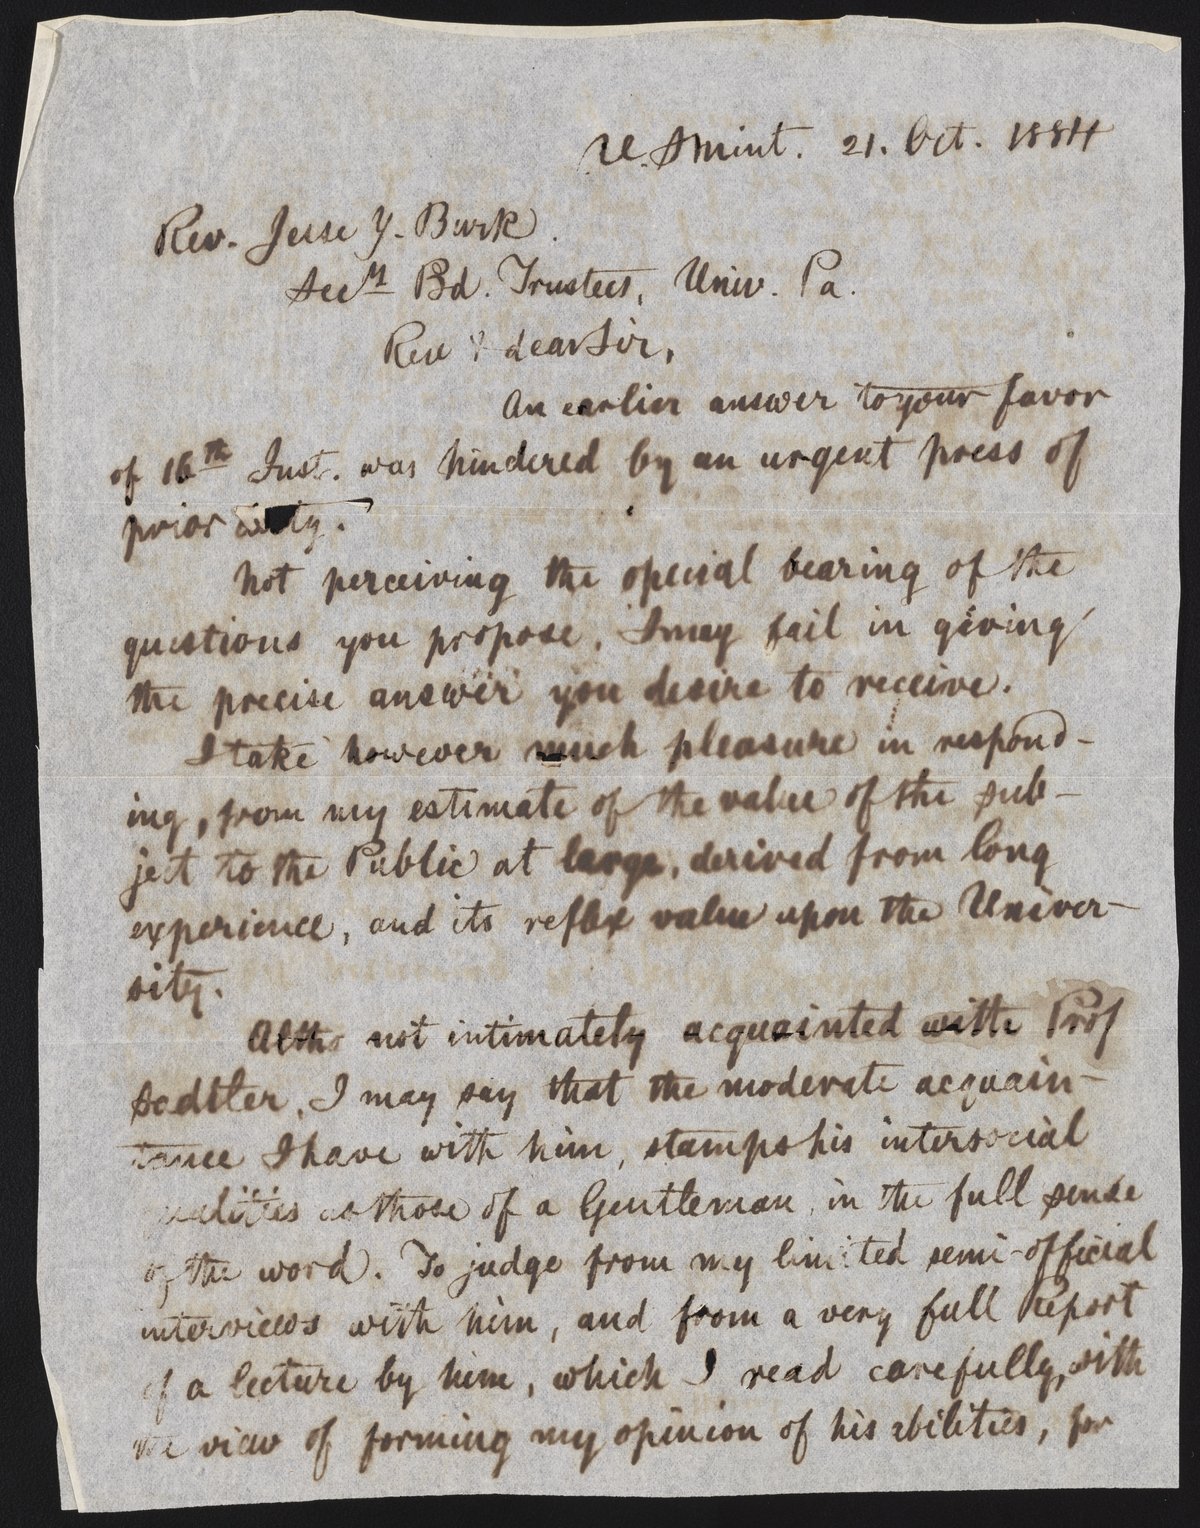 U. S Mint. 21. Oct. 1884
Rev. Jesse Y. Burk.
Secy Bd. Trustees, Univ. Pa.
Rev & dear Sir,
An earlier answer to your favor
of 16th Inst. was hindered by an urgent press of
prior duty.
Not perceiving the special bearing of the
questions you propose, I may fail in giving
the precise answer you desire to receive.
I take however much pleasure in respond-
ing, from my estimate of the value of the sub-
ject to the Public at large, derived from long
experience, and its reflex value upon the Univer-
sity.
Altho not intimately acquainted with Prof
Sadtler, I may say that the moderate acquain-
tance I have with him, stamps his intersocial
qualities as those of a Gentleman in the full sense
of the word. To judge from my limited semi-official
interviews with him, and from a very full Report
of a lecture by him, which I read carefully, with
the view of forming my opinion of his abilities, for